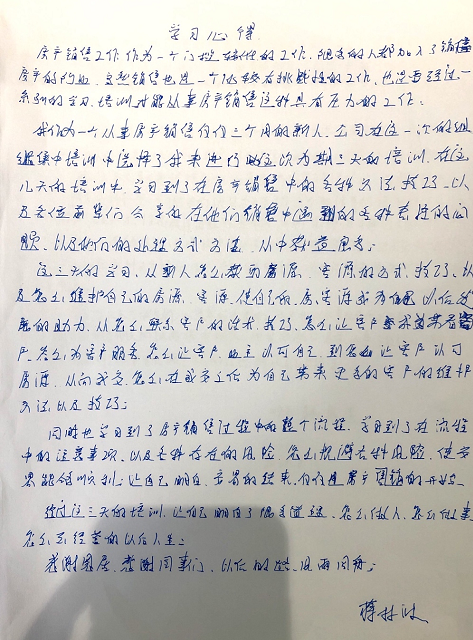 学习心得
房产销售工作作为一个门槛较低的工作,很多的人都加入了销售
房产的行业,实质销售也是一个比较有挑战性的工作,也是要经过一
系列的学习、培训才能从事房产销售这种具有压力的工作。
我作为一个从事房产销售仅仅三个月的新人,公司在这一次的组
织集中培训中选择了我来进行此次为期三天的培训,在这
几天的培训中,学习到了在房产销售中的各种方法、技巧,以
及各位前辈们分享的在他们销售中遇到的各种奇怪的问
题,以及他们的处理方式方法,从中获益思考;
这三天的学习,从新人怎么获取房源、客源的方式、技巧,以
及怎么维护自己的房源、客源,使自己的房、客源成为自己以后发
展的助力,从怎么服务客户的话术、技巧、怎么让客户
户,怎么为客户服务,怎么让客户、业主认可自己,到怎么让客户认可
房源,从而成交,怎么在成交之后为自己带来更多的客户的维护
方法以及技巧;
同时也学习到了房产销售过程中的整个流程,学习到了在流程
中的注意事项,以及各种存在的风险,怎么规避各种风险,使交
易能够顺利;让自己明白,交易的结束,仅仅是客户周销的开始。
经过这三天的培训,让自己明白了很多道理,怎么做人,怎么做事
怎么去经营的以后人生;
感谢贵居,感谢同事们,以后的路,风雨同舟;